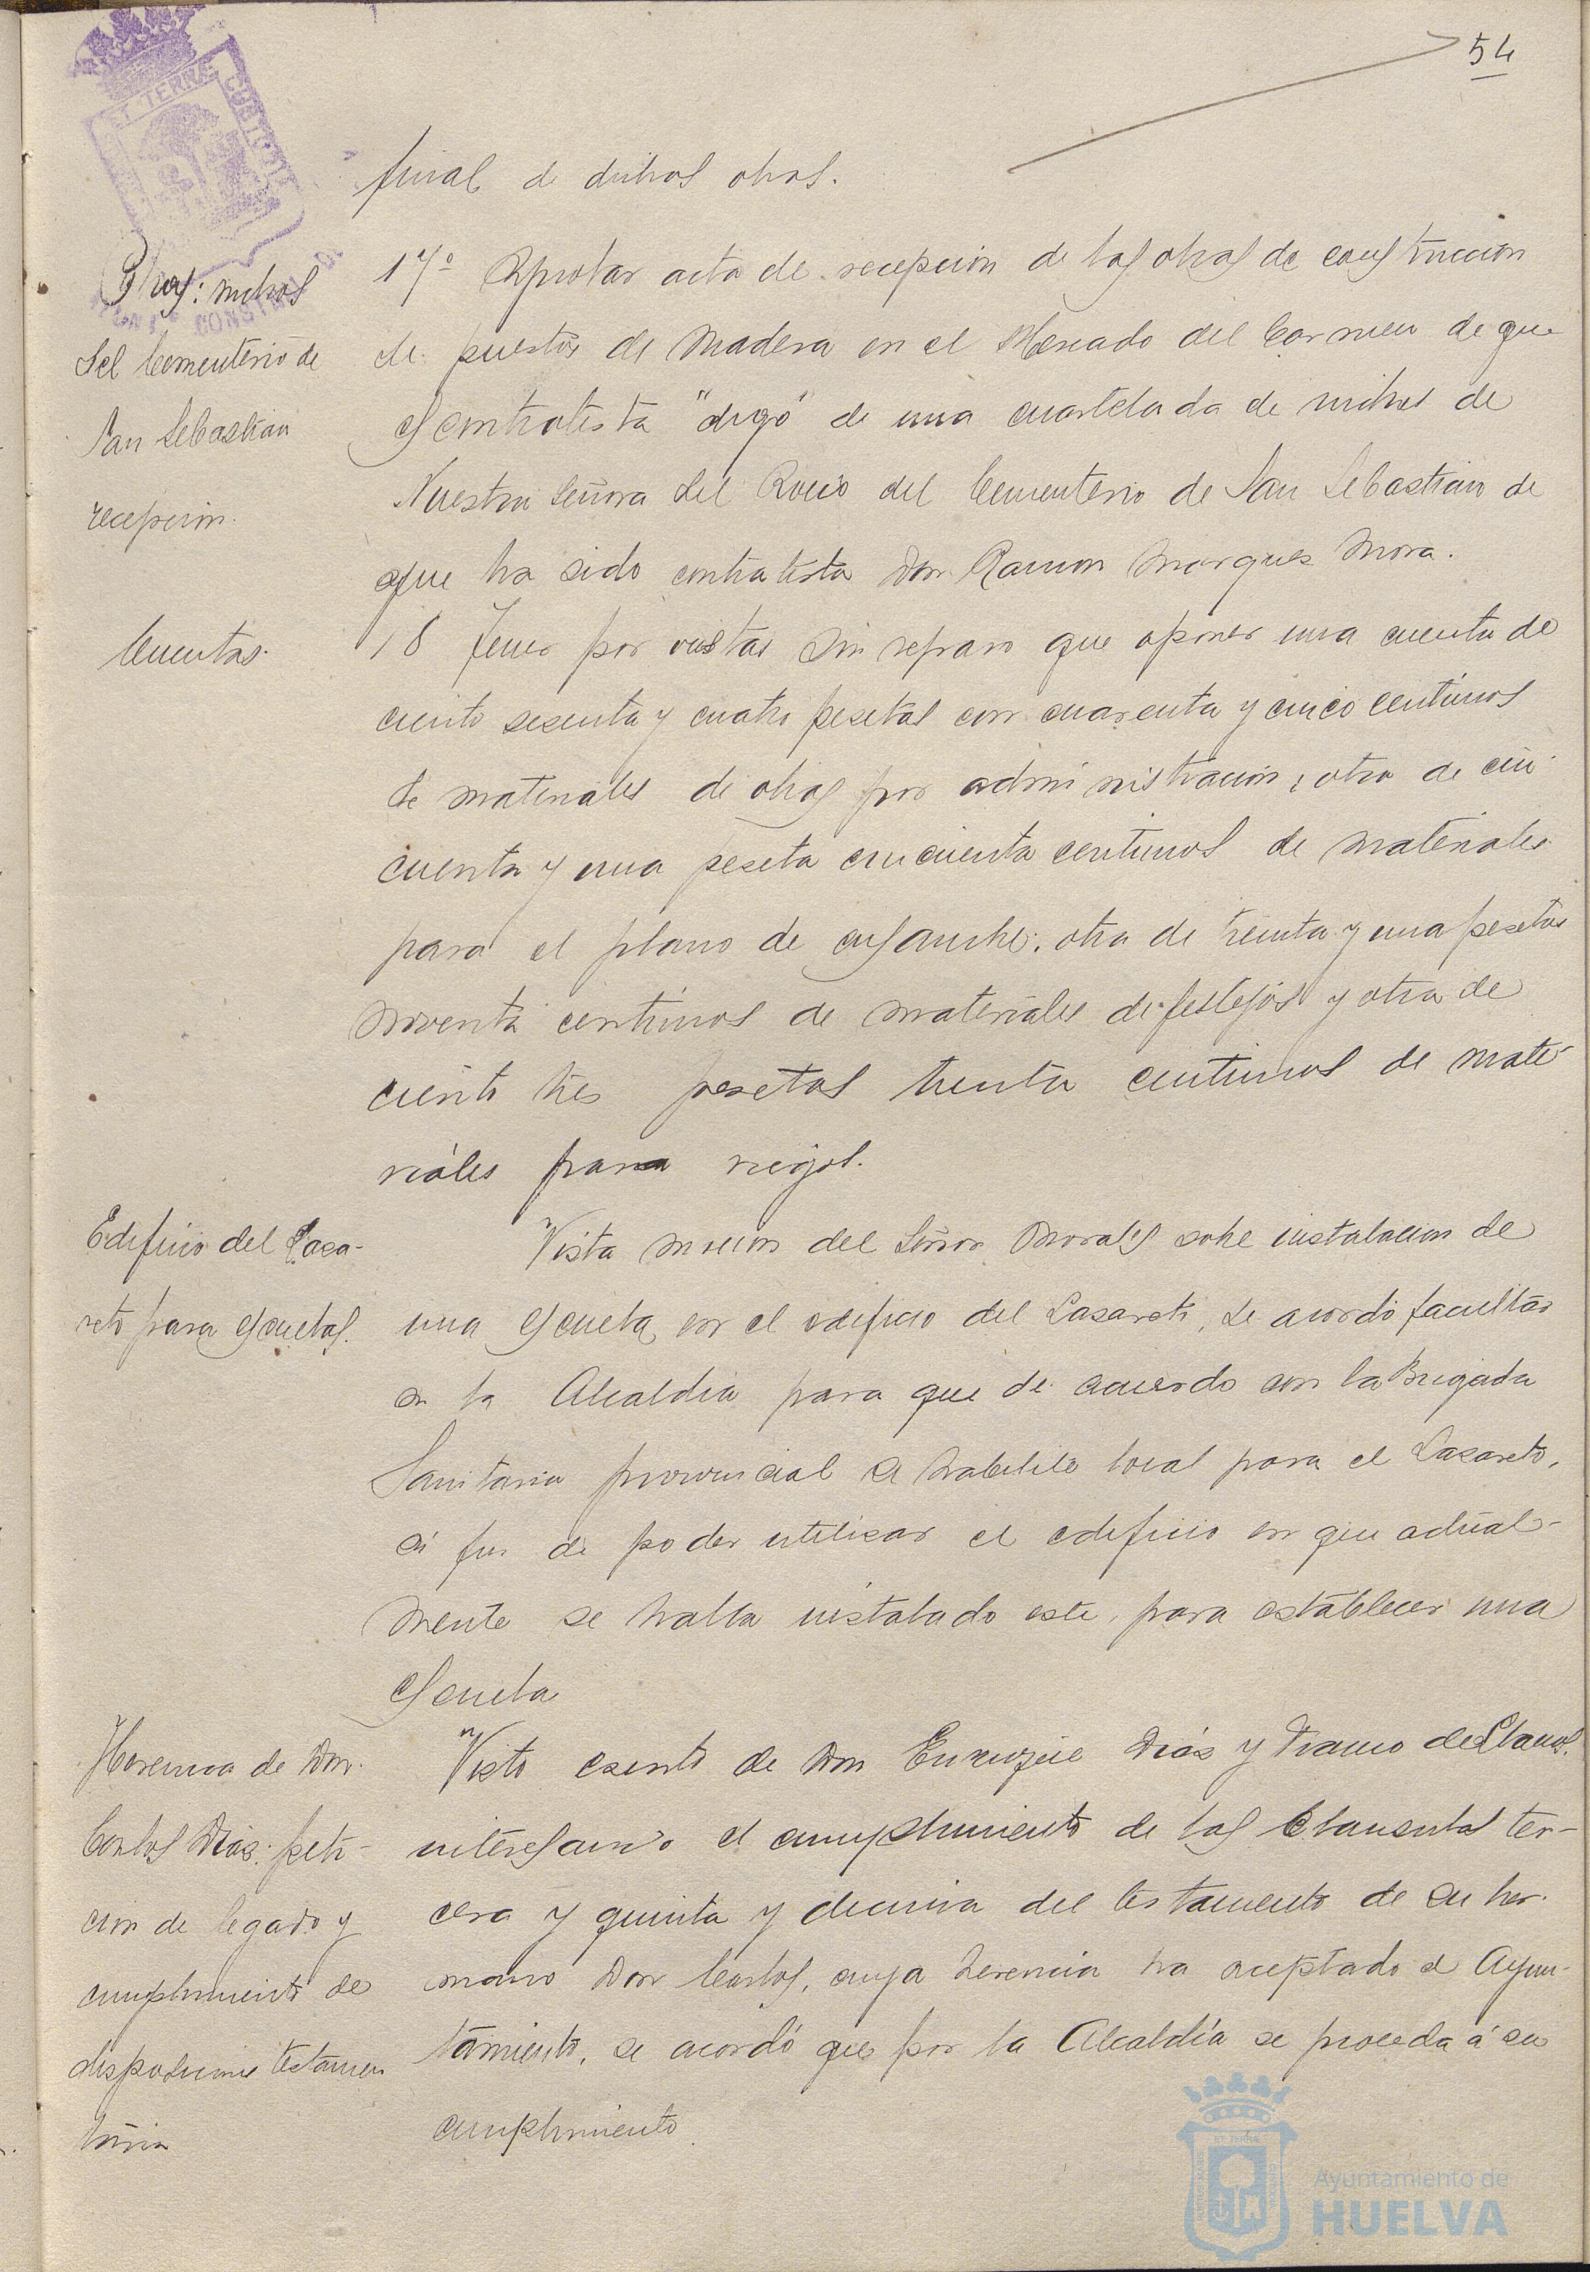 54
final de dichas obras.
Obras: nichos
del Cementerio de
San Sebastian
recepcion.
17º Aprobar acta de recepcion de las obras de construccion
de puestos de madera en el Mercado del Carmen de que
es contratista "digo" de una cuartelada de nichos de
Nuestra Señora del Rocio del Cementerio de San Sebastian de
que ha sido contratista Don Ramon Marques Mora.
Cuentas.
18 Tener por vistas sin reparo que oponer una cuenta de
ciento sesenta y cuatro pesetas con cuarenta y cinco centimos
de materiales de obras por administracion, otra de cin-
cuenta y una peseta cincuenta centimos de materiales
para el plano de ensanche, otra de treinta y una pesetas
noventa centimos de materiales de festejos y otra de
ciento tres pesetas treinta centimos de mate-
riales para riegos.
Edificio del Laza-
reto para escuelas.
Vista mocion del Señor Morales sobre instalacion de
una escuela en el edificio del Lazareto, se acordó facultar
a la Alcaldia para que de acuerdo con la Brigada
Sanitaria provincial se habilite local para el Lazareto,
á fin de poder utilizar el edificio en que actual-
mente se halla instalado este, para establecer una
escuela
Herencia de Don
Carlos Diaz: peti-
cion de legado y
cumplimiento de
disposicione testamen
taria
Visto escrito de Don Enrique Diaz y Franco de Llanos,
interesando el cumplimiento de las Clausulas ter-
cera y quinta y decima del testamento de su her-
mano Don Carlos, cuya herencia ha aceptado el Ayun-
tamiento, se acordó que por la Alcaldía se proceda á su
cumplimiento
Ayuntamiento de
HUELVA